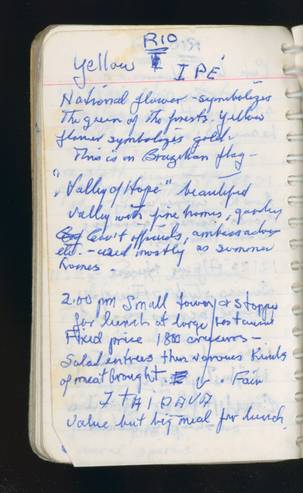 RIO
Yellow I IPÉ
National flower - symbolizes
the green of the forests. Yellow
flower symbolizes gold.
This is in Brazilian flag -
"Valley of Hope" beautiful
valley with fine homes, gardens
Gov't officials, ambassadors
etc. - used mostly as summer
homes -
2:00 pm Small town & stopped
for lunch at large restaurant
Fixed price 1800 cruzeiros -
Salad entrees then various kinds
of meat brought. Fair
ITAIPAVA
value but big meal for lunch.